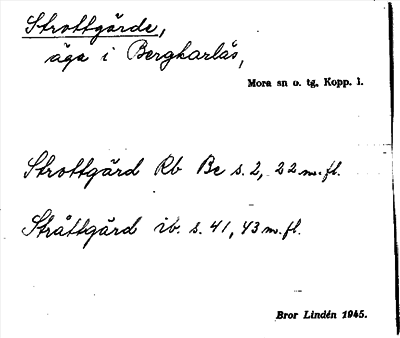 Strottgårde,
äga i Bergkarlås,
Mora sn o. tg, Kopp. l.
Strottgård Rb Bc s. 2, 22 m. fl.
Stråttgård ib. s. 41, 43 m. fl.
Bror Lindén 1945.